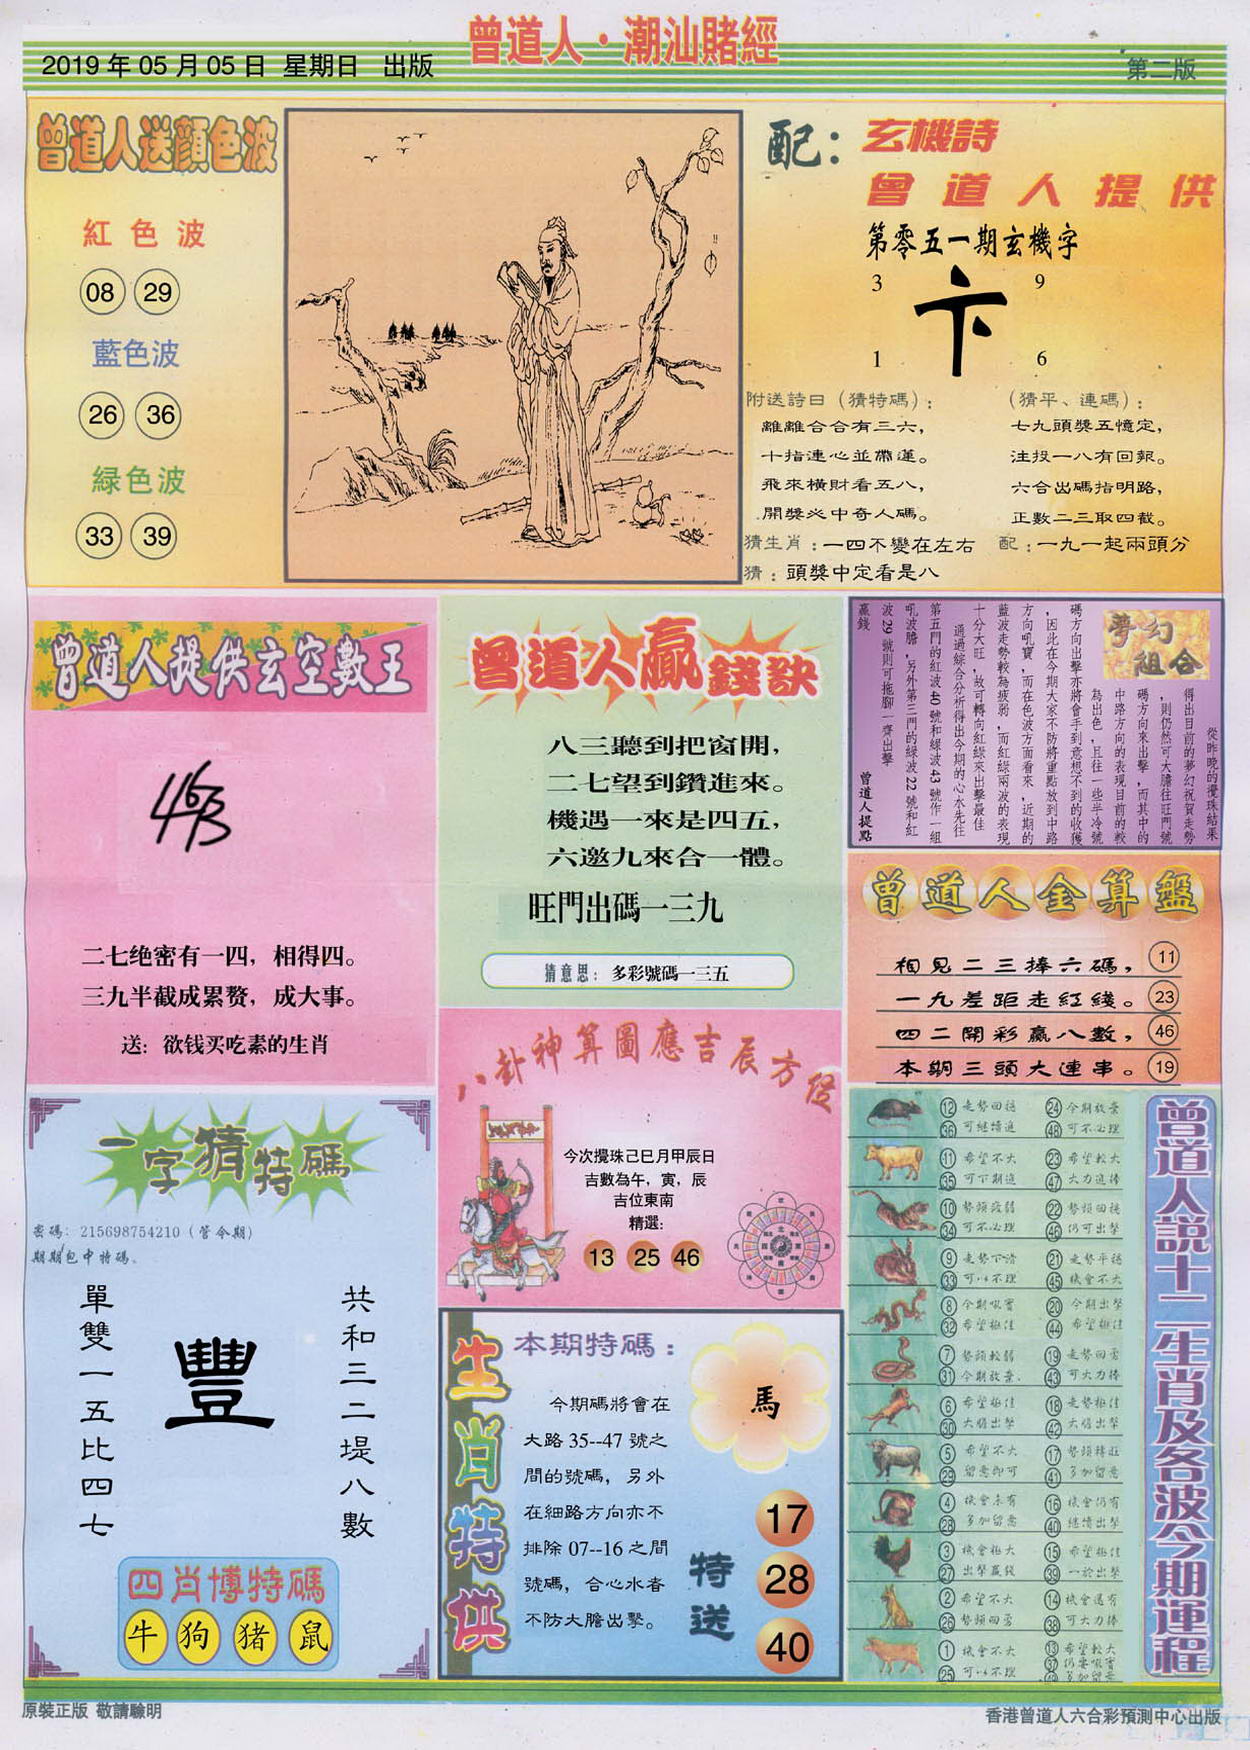 曾道人·潮汕賭經
2019 年 05 月 05 日 星期日 出版
第二版
曾道人送顏色波
紅色波
08 29
藍色波
26 36
緑色波
33 39
配：玄機詩
曾道人提供
第零五一期玄機字
3 9
卞
1 6
附送詩曰（猜特碼）：
離離合合有三六，
十指連心並帶運。
飛來橫財看五八，
開獎必中奇人碼。
（猜平、連碼）：
七九頭獎五憶定，
注投一八有回報。
六合出碼指明路，
正數二三取四截。
猜生肖：一四不變在左右
配：一九一起兩頭分
猜：頭獎中定看是八
曾道人提供玄空數王
463
二七绝密有一四，相得四。
三九半截成累赘，成大事。
送：欲钱买吃素的生肖
曾道人贏錢訣
八三聽到把窗開，
二七望到鑽進來。
機遇一來是四五，
六邀九來合一體。
旺門出碼一三九
猜意思：多彩號碼一三五
夢幻組合
從昨晚的攪珠結果
得出目前的夢幻祝賀走勢
，則仍然可大膽往旺門號
碼方向來出擊，而其中的
中路方向的表現目前的較
為出色，且往一些半冷號
碼方向出擊亦將會手到意想不到的收獲
，因此在今期大家不防將重點放到中路
方向吼寶，而在色波方面看來，近期的
藍波走勢較為疲弱，而紅綠兩波的表現
十分大旺，故可轉向紅綠來出擊最佳
通過綜合分析得出今期的心水先往
第五門的紅波 40 號和綠波 43 號作一組
吼波膽，另外第三門的綠波 22 號和紅
波 29 號則可拖腳一齊出擊
贏錢
曾道人提點
曾道人金算盤
相見二三捧六碼， 11
一九差距走紅綫。 23
四二開彩贏八數， 46
本期三頭大連串。 19
一字猜特碼
密碼：215698754210（管今期）
期期包中特碼。
共和三二堤八數
豐
單雙一五比四七
四肖博特碼
牛 狗 猪 鼠
八卦神算圖應吉辰方位
今次攪珠己巳月甲辰日
吉數為午，寅，辰
吉位東南
精選：
13 25 46
生肖特供
本期特碼：
馬
今期碼將會在
大路 35--47 號之
間的號碼，另外
在細路方向亦不
排除 07--16 之間
號碼，合心水者
不防大膽出擊。
特送
17
28
40
曾道人説十二生肖及各波今期運程
12 走勢回穩 24 今期放棄
36 可繼續追 48 可不必理
11 希望不大 23 希望較大
35 可下期追 47 大力追捧
10 勢頭疲弱 22 勢頭回穩
34 可不必理 46 仍可出擊
9 走勢下滑 21 走勢平穩
33 可以不理 45 機會不大
8 今期吼寶 20 今期出擊
32 希望極佳 44 希望極佳
7 勢頭較弱 19 走勢回勇
31 今期放棄 43 可大力捧
6 希望極佳 18 走勢極佳
30 大膽出擊 42 大膽出擊
5 希望不大 17 勢頭轉旺
29 留意即可 41 多加留意
4 機會未有 16 機會仍有
28 多加留意 40 繼續出擊
3 機會極大 15 希望極佳
27 出擊贏錢 39 一於出擊
2 希望不大 14 機會還有
26 勢頭回勇 38 可大力捧
1 機會不大 13 希望較大
25 可以不理 37 仍要吼寶
49 多加留意
原裝正版 敬請驗明
香港曾道人六合彩預測中心出版